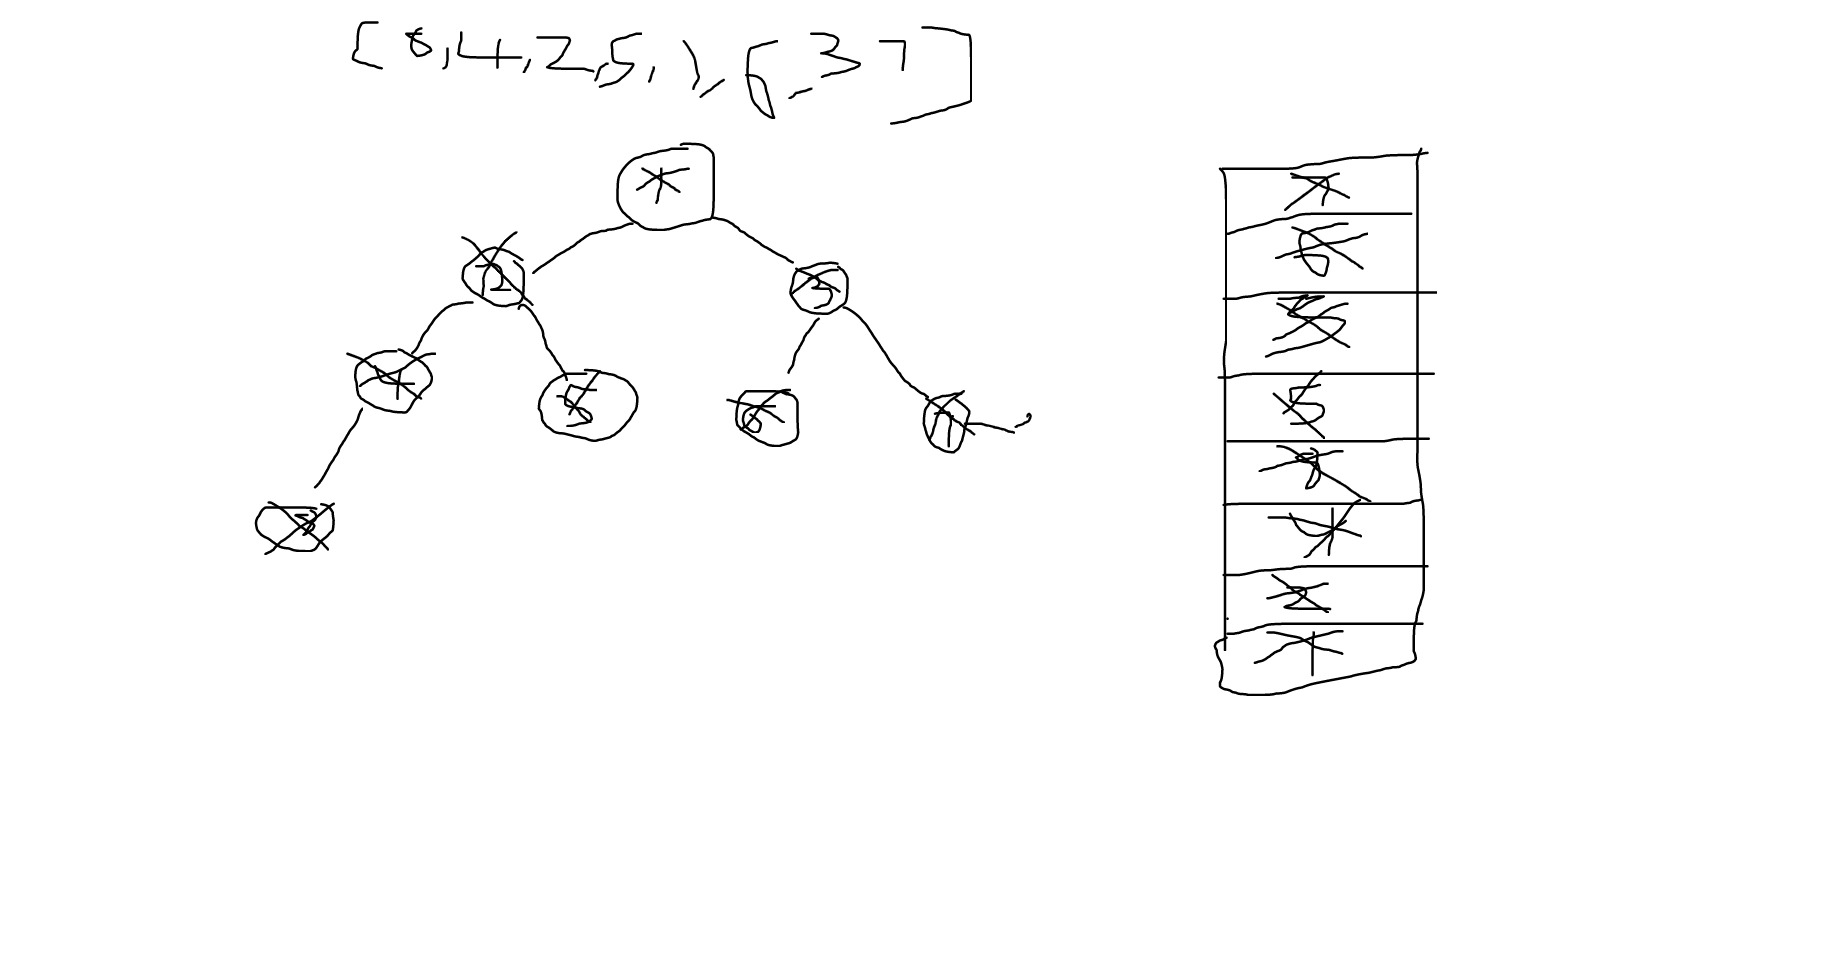 [8,4,2,5,1,6,37]
1
2 3
4 5 6 7
8
7
6
3
5
8
4
2
1